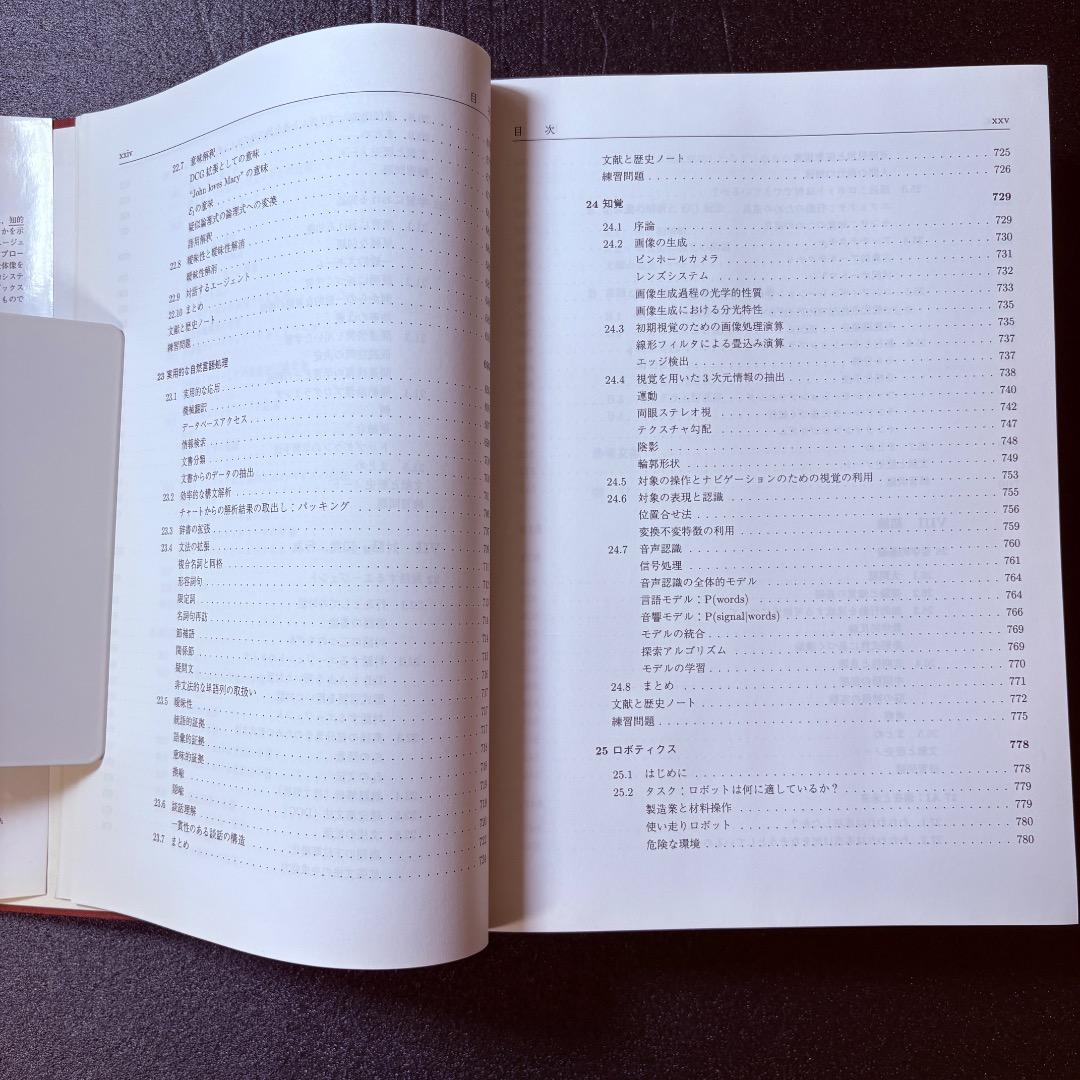 知的
かを示
ージェ
プロー
体像を
システ
ボックス
もので
xxiv
目
22.7 意味解釈
DCG 拡張としての意味
"John loves Mary" の意味
の意味
疑似論理式の論理式への変換
語用解釈
22.8 曖昧性と曖昧性解消
曖昧性解消
22.9 対話するエージェント
22.10 まとめ
文献と歴史ノート
練習問題
23 実用的な自然言語処理
23.1 実用的な応用
機械翻訳
データベースアクセス
情報検索
文書分類
文書からのデータの抽出
23.2 効率的な構文解析
チャートからの解析結果の取出し:パッキング
23.3 辞書の拡張
23.4 文法の拡張
複合名詞と同格
形容詞句
限定詞
名詞句再訪
節補語
関係節
疑問文
非文法的な単語列の取扱い
23.5 曖昧性
統語的証拠
語彙的証拠
意味的証拠
換喩
隠喩
23.6 談話理解
一貫性のある談話の構造
23.7 まとめ
目 次 xxv
文献と歴史ノート 725
練習問題 726
24 知覚 729
24.1 序論 729
24.2 画像の生成 730
ピンホールカメラ 731
レンズシステム 732
画像生成過程の光学的性質 733
画像生成における分光特性 735
24.3 初期視覚のための画像処理演算 735
線形フィルタによる畳込み演算 737
エッジ検出 737
24.4 視覚を用いた3次元情報の抽出 738
運動 740
両眼ステレオ視 742
テクスチャ勾配 747
陰影 748
輪郭形状 749
24.5 対象の操作とナビゲーションのための視覚の利用 753
24.6 対象の表現と認識 755
位置合せ法 756
変換不変特徴の利用 759
24.7 音声認識 760
信号処理 761
音声認識の全体的モデル 764
言語モデル:P(words) 764
音響モデル:P(signal|words) 766
モデルの統合 769
探索アルゴリズム 769
モデルの学習 770
24.8 まとめ 771
文献と歴史ノート 772
練習問題 775
25 ロボティクス 778
25.1 はじめに 778
25.2 タスク:ロボットは何に適しているか? 779
製造業と材料操作 779
使い走りロボット 780
危険な環境 780